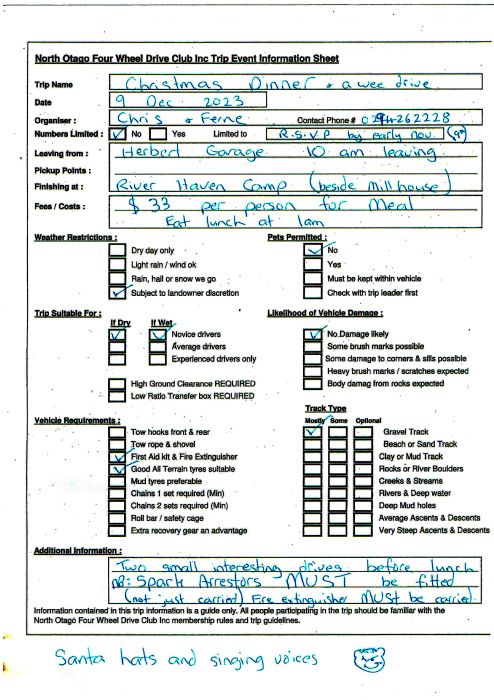 North Otago Four Wheel Drive Club Inc Trip Event Information Sheet
Trip Name Christmas Dinner + a wee drive
Date 9 Dec 2023
Organiser : Chris + Ferne Contact Phone #
Numbers Limited : No Yes Limited to R.S.V.P by early nov.
Leaving from : Herbert Garage 10 am leaving
Pickup Points :
Finishing at : River Haven Camp (beside Mill house)
Fees / Costs : $33 per person for Meal
Eat lunch at 1am
Weather Restrictions : Pets Permitted :
Dry day only No
Light rain / wind ok Yes
Rain, hail or snow we go Must be kept within vehicle
Subject to landowner discretion Check with trip leader first
Trip Suitable For : Likelihood of Vehicle Damage :
If Dry If Wet
Novice drivers No Damage likely
Average drivers Some brush marks possible
Experienced drivers only Some damage to corners & sills possible
Heavy brush marks / scratches expected
High Ground Clearance REQUIRED Body damag from rocks expected
Low Ratio Transfer box REQUIRED
Track Type
Vehicle Requirements : Mostly Some Optional
Tow hooks front & rear Gravel Track
Tow rope & shovel Beach or Sand Track
First Aid kit & Fire Extinguisher Clay or Mud Track
Good All Terrain tyres suitable Rocks or River Boulders
Mud tyres preferable Creeks & Streams
Chains 1 set required (Min) Rivers & Deep water
Chains 2 sets required (Min) Deep Mud holes
Roll bar / safety cage Average Ascents & Descents
Extra recovery gear an advantage Very Steep Ascents & Descents
Additional Information :
Two small interesting drives before lunch
NB: Spark Arrestors MUST be fitted
(not just carried) Fire extinguisher MUST be carried.
Information contained in this trip information is a guide only. All people participating in the trip should be familiar with the
North Otago Four Wheel Drive Club Inc membership rules and trip guidelines.
Santa hats and singing voices